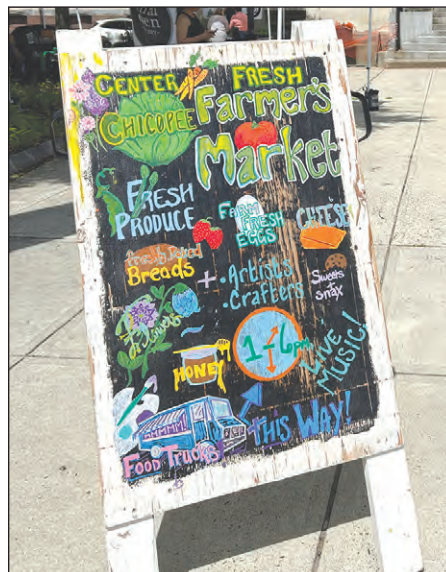 CENTER FRESH
CHICOPEE Farmer's
Market
FRESH
PRODUCE
FARM
FRESH
EGGS
CHEESE
Breads
+ • Artists
• Crafters
Sweets
+
snax
Flowers
HONEY
1-6pm
LIVE
MUSIC!
MMMMM!
FOOD TRUCKS
THIS WAY!